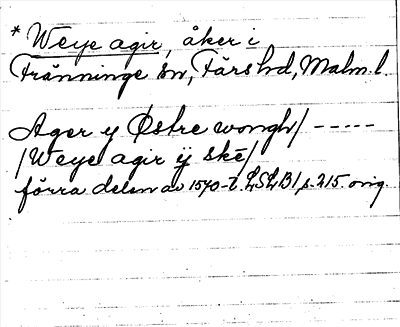 * Weye agir, åker i
Tränninge sn, Färs hd, Malm. l.
Ager y Østre wongh/ -----
/Weye agir ÿ skē/
förra delen av 1540-t. LSLB1, s. 215. orig.